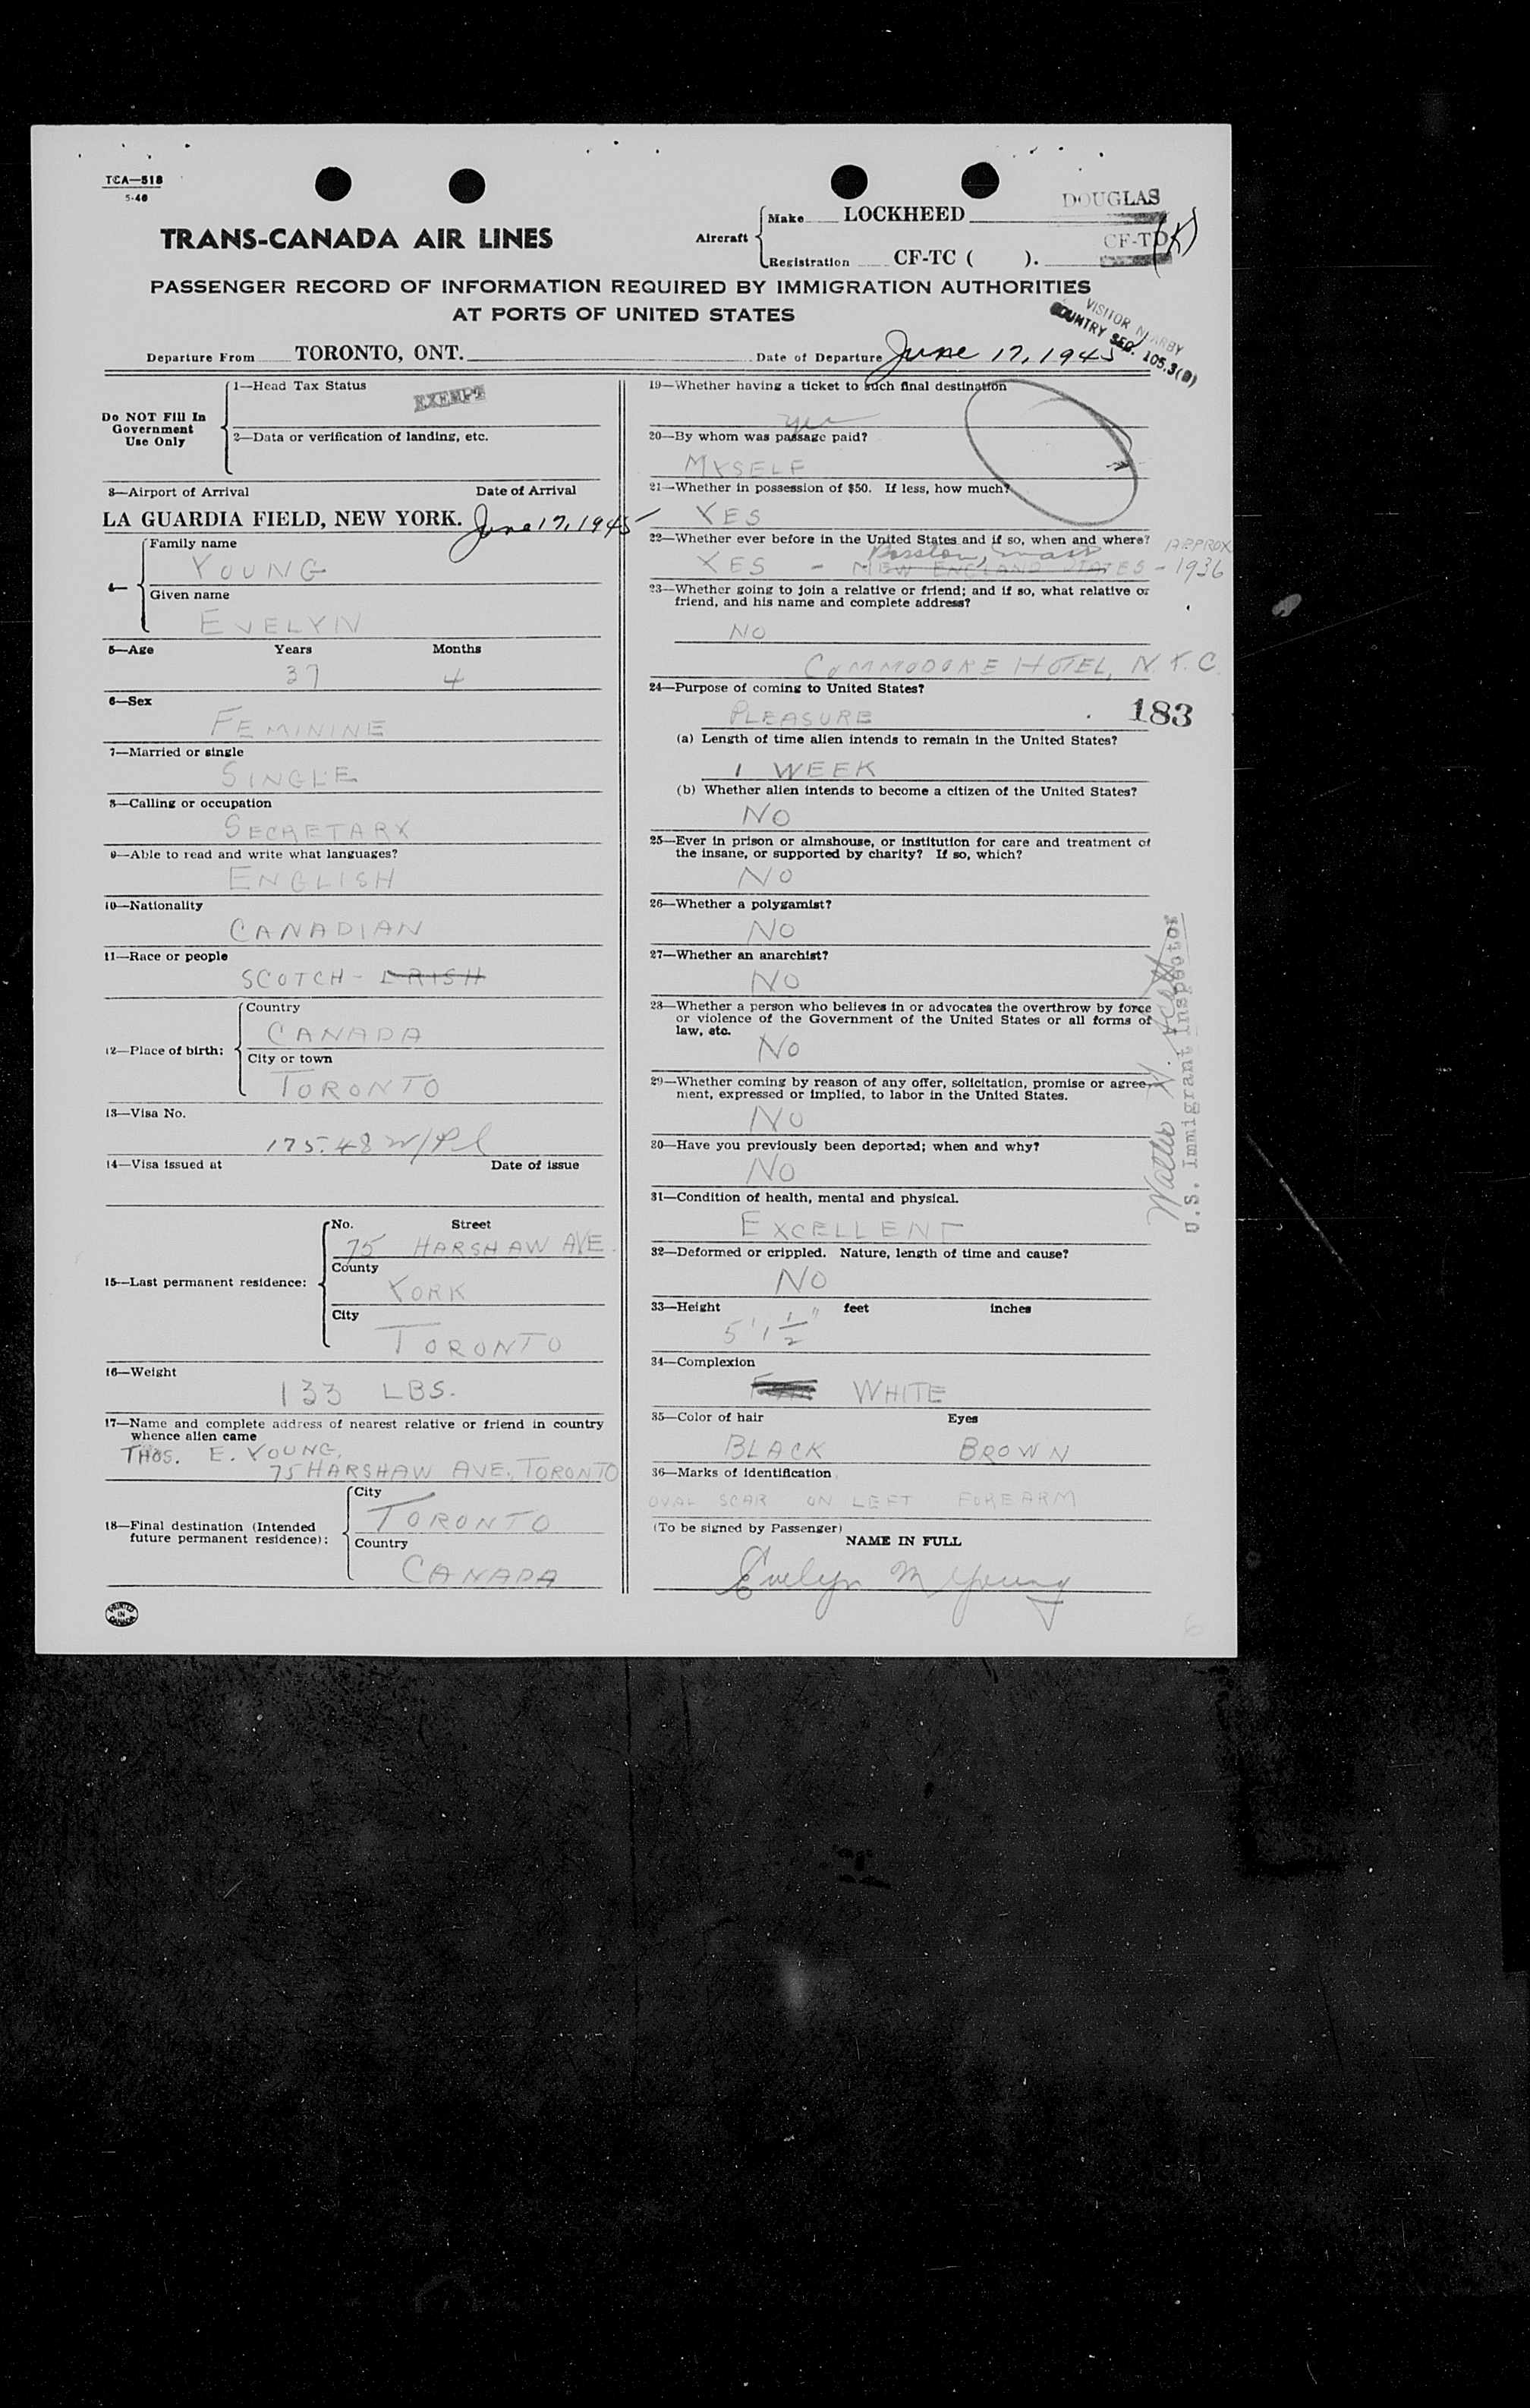 TCA—518
5-40
TRANS-CANADA AIR LINES
Aircraft
Make LOCKHEED DOUGLAS
Registration CF-TC ( ). CF-TD (K)
PASSENGER RECORD OF INFORMATION REQUIRED BY IMMIGRATION AUTHORITIES
AT PORTS OF UNITED STATES
VISITOR NEARBY
COUNTRY SEC. 105.3(B)
Departure From TORONTO, ONT. Date of Departure June 17, 1945
Do NOT Fill In
Government
Use Only
1—Head Tax Status
EXEMPT
2—Data or verification of landing, etc.
3—Airport of Arrival Date of Arrival
LA GUARDIA FIELD, NEW YORK. June 17, 1945
4—
Family name
YOUNG
Given name
EVELYN
5—Age Years Months
37 4
6—Sex
FEMININE
7—Married or single
SINGLE
8—Calling or occupation
SECRETARY
9—Able to read and write what languages?
ENGLISH
10—Nationality
CANADIAN
11—Race or people
SCOTCH - IRISH
12—Place of birth:
Country
CANADA
City or town
TORONTO
13—Visa No.
175.48 w/Pl
14—Visa issued at Date of issue
15—Last permanent residence:
No. Street
75 HARSHAW AVE.
County
YORK
City
TORONTO
16—Weight
133 LBS.
17—Name and complete address of nearest relative or friend in country
whence alien came
THOS. E. YOUNG,
75 HARSHAW AVE., TORONTO
18—Final destination (Intended
future permanent residence):
City
TORONTO
Country
CANADA
PRINTED
IN
CANADA
19—Whether having a ticket to such final destination
yes
20—By whom was passage paid?
MYSELF
21—Whether in possession of $50. If less, how much?
YES
22—Whether ever before in the United States and if so, when and where?
Boston, Mass APPROX
YES - NEW ENGLAND STATES - 1936
23—Whether going to join a relative or friend; and if so, what relative or
friend, and his name and complete address?
NO
COMMODORE HOTEL, N.Y.C.
24—Purpose of coming to United States?
PLEASURE 183
(a) Length of time alien intends to remain in the United States?
1 WEEK
(b) Whether alien intends to become a citizen of the United States?
NO
25—Ever in prison or almshouse, or institution for care and treatment of
the insane, or supported by charity? If so, which?
NO
26—Whether a polygamist?
NO
27—Whether an anarchist?
NO
28—Whether a person who believes in or advocates the overthrow by force
or violence of the Government of the United States or all forms of
law, etc.
NO
29—Whether coming by reason of any offer, solicitation, promise or agree-
ment, expressed or implied, to labor in the United States.
NO
30—Have you previously been deported; when and why?
NO
31—Condition of health, mental and physical.
EXCELLENT
32—Deformed or crippled. Nature, length of time and cause?
NO
33—Height feet inches
5' 1 1/2"
34—Complexion
WHITE
35—Color of hair Eyes
BLACK BROWN
36—Marks of identification
OVAL SCAR ON LEFT FOREARM
(To be signed by Passenger)
NAME IN FULL
Evelyn M Young
Walter
U.S. Immigrant Inspector